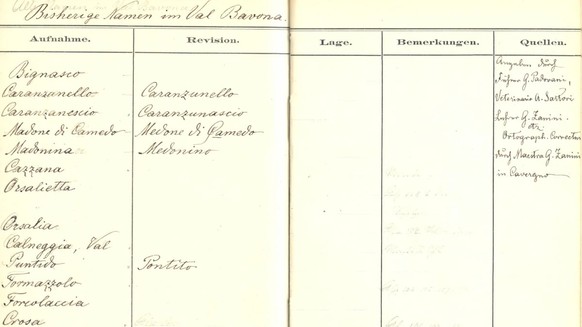 Bisherige Namen im Val Bavona.
Aufnahme. Revision. Lage. Bemerkungen. Quellen.
Bignasco
Caranzunello Caranzunello
Caranzanescio Caranzunascio
Madone di Camedo Medone di Camedo
Madonina Medonino
Cazzana
Orsalietta
Orsalia
Calneggia, Val
Puntido Pontito
Formazzolo
Foreolaccia
Crosa
Angaben durch
Führer G. Padovani,
Veterinario A. Sartori
Lehrer G. Zanini.
etz
Ortograph. Correctur
durch Maestra G. Zanini
in Cavergno